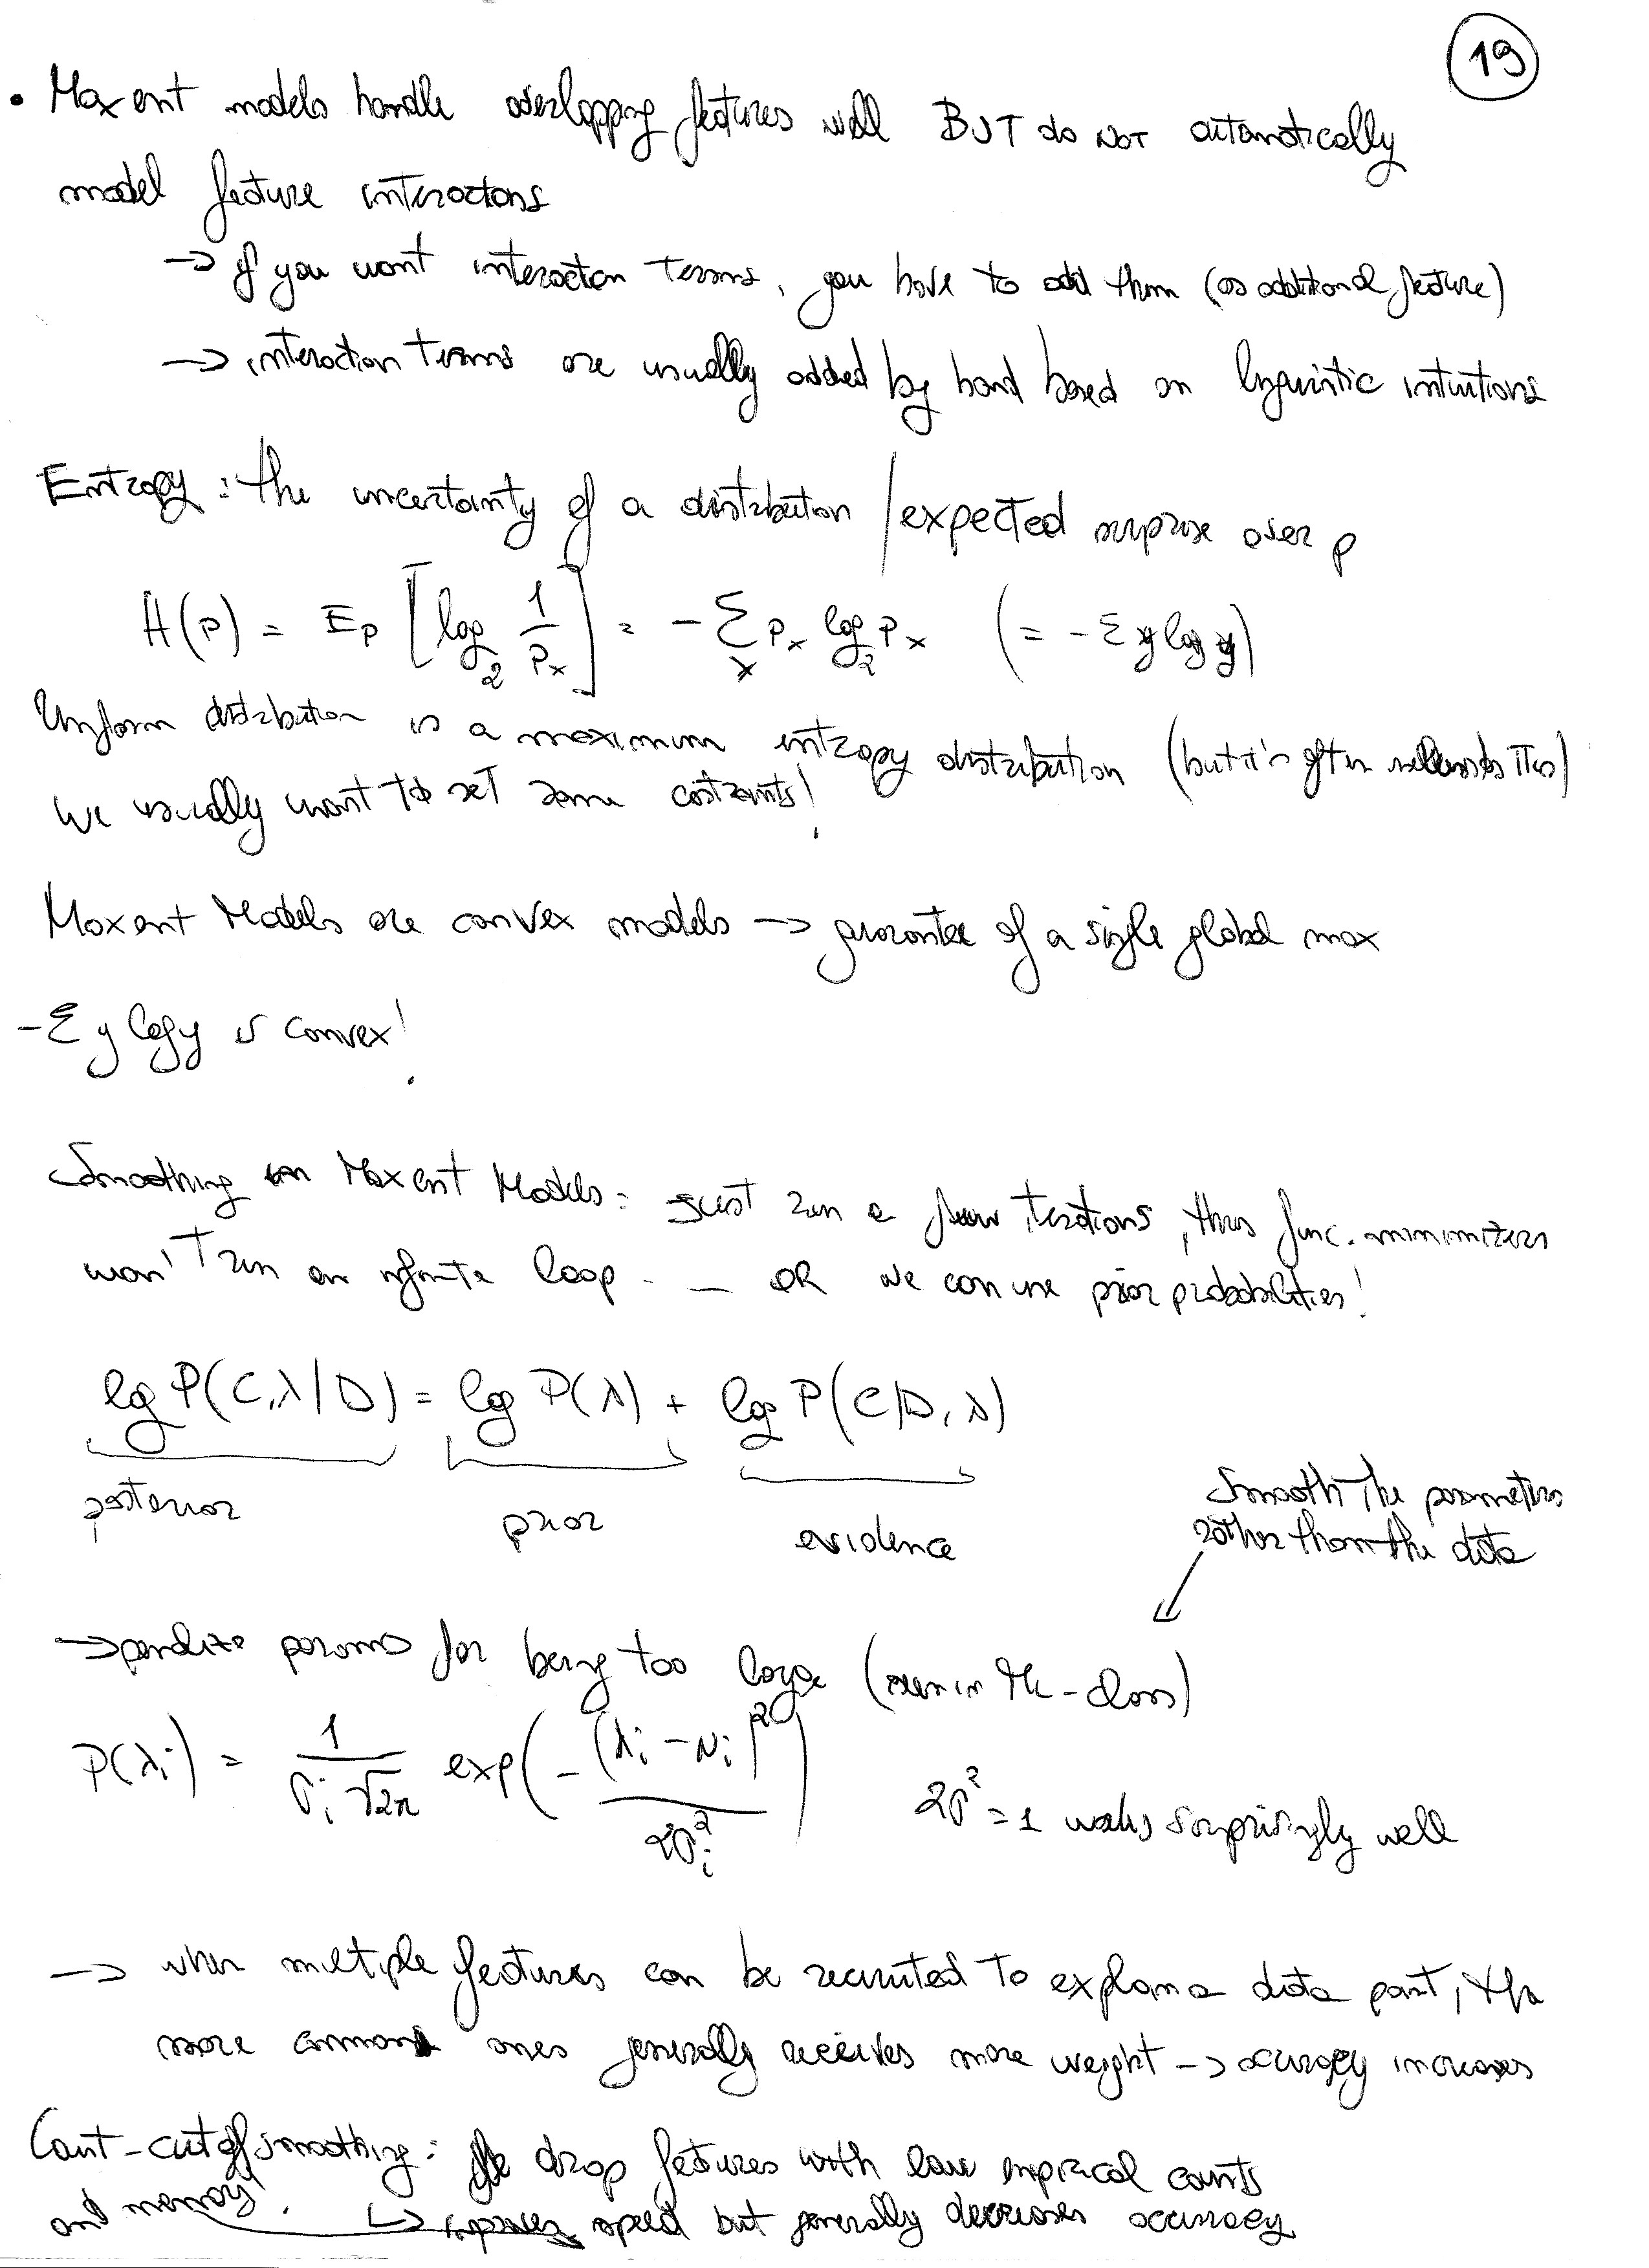 19
• Maxent models handle overlapping features well BUT do NOT automatically
model feature interactions
→ if you want interaction terms, you have to add them (as additional feature)
→ interaction terms are usually added by hand based on linguistic intuitions
Entropy: the uncertainty of a distribution / expected surprise over p
H(p) = E_p [log_2 1/p_x] = - Σ_x p_x log_2 p_x (= - Σ y log y)
Uniform distribution is a maximum entropy distribution (but it's often
we usually want to set some costraints!
Maxent Models are convex models → guarantee of a single global max
- Σ y log y is convex!
Smoothing in Maxent Models: just run a few iterations, thus func. minimizers
won't run an infinite loop - _ OR we can use prior probabilities!
log P(C,λ|D) = log P(λ) + log P(C|D,λ)
posterior prior evidence
Smooth the parameters
rather than the data
→ penalize params for being too large (even in the-class)
P(λi) = 1/(σi √2π) exp(-(λi - μi)²/2σi²) 2σ² = 1 works surprisingly well
→ when multiple features can be recruited to explain a data point, the
more common ones generally receives more weight → accuracy increases
Count-cutoff smoothing: We drop features with low empirical counts
and memory! ↳ improves speed but generally decreases accuracy